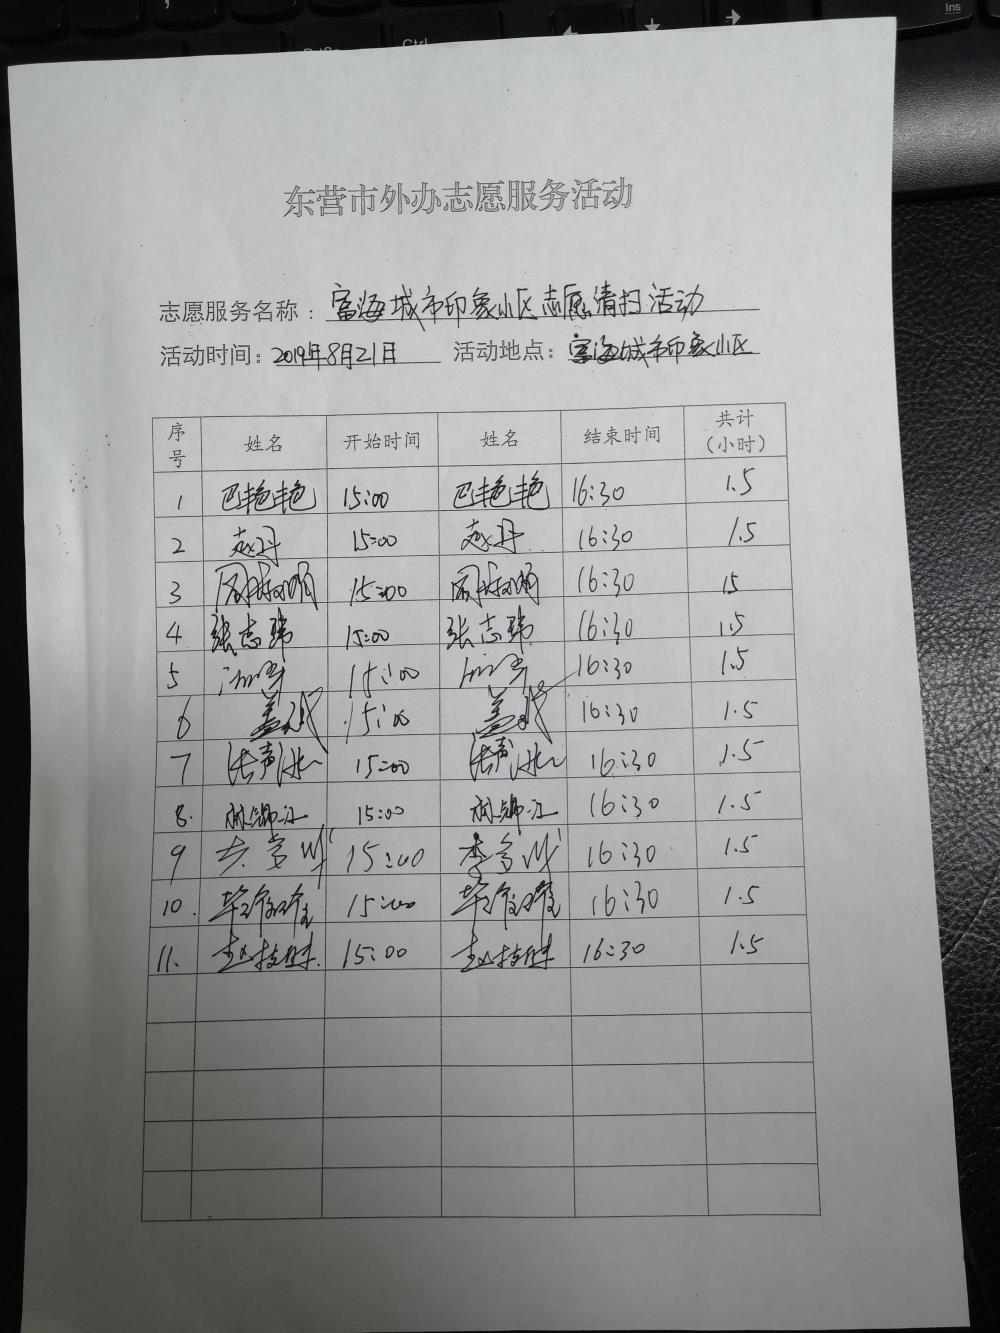 东营市外办志愿服务活动
志愿服务名称：富海城市印象小区志愿清扫活动
活动时间：2019年8月21日 活动地点：富海城市印象小区
序号 姓名 开始时间 姓名 结束时间 共计（小时）
1 巴艳艳 15:00 巴艳艳 16:30 1.5
2 赵丹 15:00 赵丹 16:30 1.5
3 15:00 16:30 15
4 张志玮 15:00 张志玮 16:30 1.5
5 15:00 16:30 1.5
6 15:00 16:30 1.5
7 15:00 16:30 1.5
8. 15:00 16:30 1.5
9 15:00 16:30 1.5
10. 15:00 16:30 1.5
11. 15:00 16:30 1.5
Ctrl
Ins